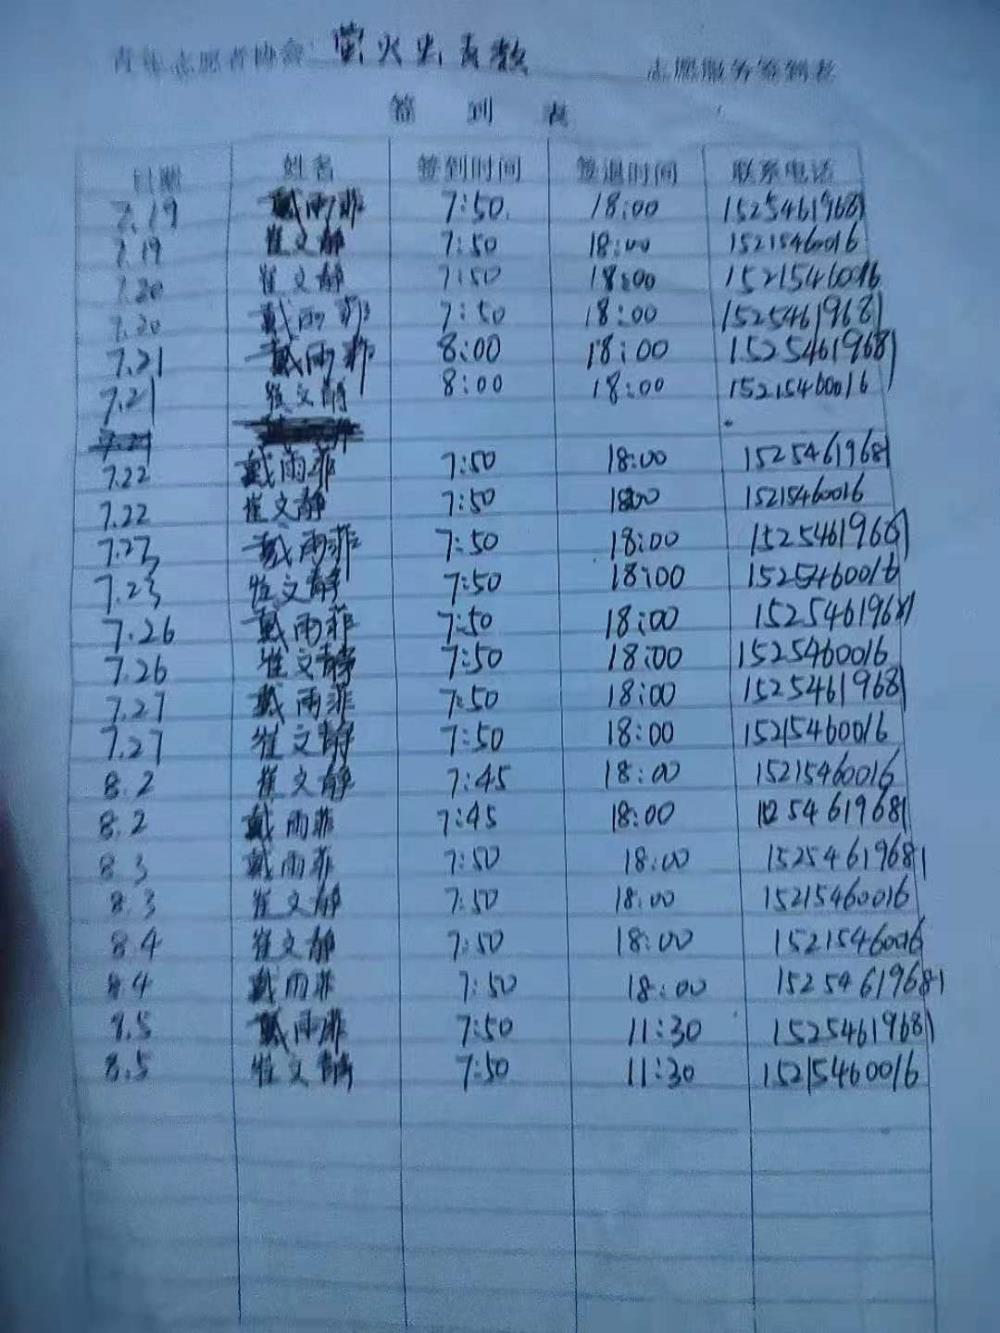 青年志愿者协会 萤火虫支教 志愿服务签到表
签 到 表
日期 姓名 签到时间 签退时间 联系电话
7.19 戴雨菲 7:50 18:00 15254619681
7.19 崔文静 7:50 18:00 15215460016
7.20 崔文静 7:50 18:00 15215460016
7.20 戴雨菲 7:50 18:00 15254619681
7.21 戴雨菲 8:00 18:00 15254619681
7.21 崔文静 8:00 18:00 15215460016
7.22 戴雨菲 7:50 18:00 15254619681
7.22 崔文静 7:50 18:00 15215460016
7.23 戴雨菲 7:50 18:00
7.23 崔文静 7:50 18:00 1525460016
7.26 戴雨菲 7:50 18:00 15254619681
7.26 崔文静 7:50 18:00 1525460016
7.27 戴雨菲 7:50 18:00 15254619681
7.27 崔文静 7:50 18:00 15215460016
8.2 崔文静 7:45 18:00 15215460016
8.2 戴雨菲 7:45 18:00
8.3 戴雨菲 7:50 18:00 15254619681
8.3 崔文静 7:50 18:00 15215460016
8.4 崔文静 7:50 18:00 15215460016
8.4 戴雨菲 7:50 18:00 15254619681
8.5 戴雨菲 7:50 11:30 15254619681
8.5 崔文静 7:50 11:30 15215460016